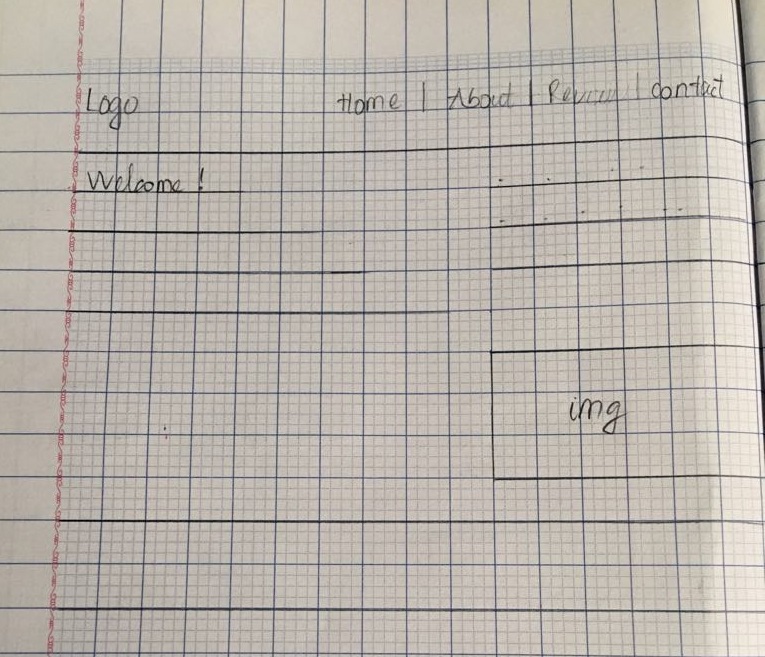 Logo Home | About | Review | contact
Welcome !
img